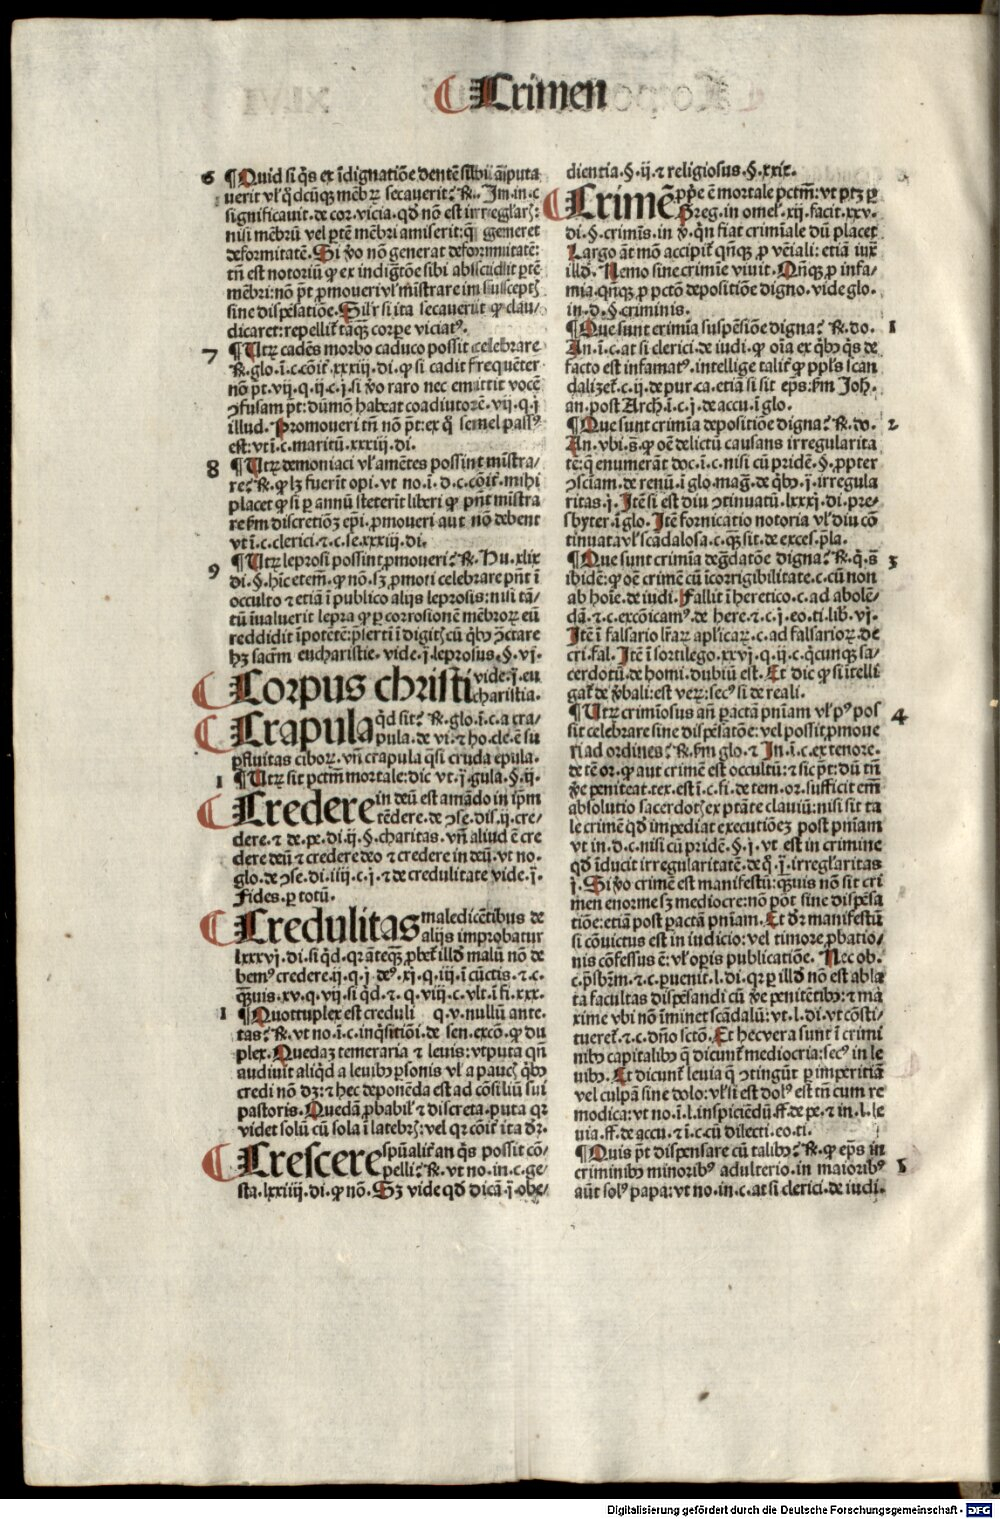 Crimen
6 ¶Quid si q̄s ex īdignatiōe dentē sibi āputa
uerit vl' q̄dcūqꝫ mēbꝝ secauerit? R̄. Jm̄.in.c
significauit.de cor.vicia.qd̓ nō est irreglarꝭ:
nisi mēbrū vel ptē mēbri amiserit: q̄ generet
deformitatē. Si ꝟo nō generat deformitatē:
tn̄ est notoriū ꝙ ex indigtōe sibi abscidit ptē
mēbri: nō pt̄ ꝓmoueri vl' mīstrare in susceptꝭ
sine dispēsatiōe. Sil'r si ita secauerit ꝙ clau/
dicaret: repellit̄ tāqꝫ corpe viciatꝰ.
7 ¶Utꝝ cadēs morbo caduco possit celebrare
R̄.glo.ī.c.cōit̄.xxxiij.di.ꝙ si cadit frequēter
nō pt̄.vij.q.ij.c.j.si ꝟo raro nec emittit vocē
ꝯfusam pt̄: dūmō habeat coadiutorē.vij.q.j
illud. Promoueri tn̄ nō pt̄: ex q̄ semel passꝰ
est: vt ī.c.maritū.xxxiij.di.
8 ¶Utꝝ demoniaci vl' amētes possint mīstra/
re? R̄.ꝙ lꝫ fuerīt opi.vt no.ī.d.c.cōit̄.mihi
placet ꝙ si p annū steterīt liberi ꝙ pn̄t mīstra
re ẜm discretiōꝫ epī.ꝓmoueri aut nō debent
vt ī.c.clerici.⁊.c.se.xxxiij.di.
9 ¶Utꝝ leprosi possint ꝓmoueri? R̄. Hu.xlix
di.§.hīc etem̄.ꝙ nō.sꝫ ꝓmoti celebrare pn̄t ī
occulto ⁊ etiā ī publico alijs leprosis: nisi tā/
tū īualuerit lepra ꝙ ꝑ corrosionē mēbroꝝ eū
reddidit īpotētē: p̄serti ī digitꝭ cū q̄bꝰ ꝯtctare
hꝫ sacrm̄ eucharistie. vide.j.leprosus.§.vj.
Corpus christi vide.j.eu
charistia.
Crapula q̄d sit? R̄.glo.ī.c.a cra/
pula.de vi.⁊ ho.cle.ē su
ꝑfluitas ciboꝝ. vn̄ crapula q̄si cruda epula.
1 ¶Utꝝ sit pctm̄ mortale: dic vt.j.gula.§.ij.
Credere in deū est amādo in ip̄m
tēdere.de ꝯse.dis.ij.cre/
dere.⁊ de.pe.di.ij.§.charitas. vn̄ aliud ē cre
dere deū ⁊ credere deo ⁊ credere in deū. vt no.
glo.de ꝯse.di.iiij.c.j.⁊ de credulitate vide.j.
Fides. ꝑ totū.
Credulitas maledicētibus de
alijs improbatur
lxxxvj.di.si q̄d. qr āteqꝫ ꝓbet̄ illd̓ malū nō de
bemꝰ credere.ij.q.j deꝰ.xj.q.iij.ī cūctis.⁊.c.
q̄ꝫuis.xv.q.vij.si q̄d.⁊.q.viij.c.vlt.ī fi.xxx.
1 ¶Quottuplex est creduli q.v.nullū ante.
tas? R̄.vt no.ī.c.inq̄sitiōi.de sen.excō.ꝙ du
plex. Quedaꝫ temeraria ⁊ leuis: vtputa qn̄
audiuit aliq̄d a leuibꝰ psonis vl' a paucꝭ q̄bꝰ
credi nō dꝫ: ⁊ hec deponēda est ad cōsiliū sui
pastoris. Quedā ꝓbabil' ⁊ discreta. puta qr
videt solū cū sola ī latebrꝭ: vel qr cōit̄ ita dr̄.
Crescere spūalit̄ an q̄s possit cō/
pelli? R̄.vt no.in.c.ge/
sta.lxxiiij.di.ꝙ nō. Sꝫ vide qd̓ dicā.j.obe/
dientia.§.ij.⁊ religiosus.§.xxix.
Crimē ꝓpe ē mortale pctm̄: vt ptꝫ ꝑ
Greg.in omel'.xij.facit.xxv.
di.§.crimīs.in ꝟ.qn̄ fiat crimīale dū placet
Largo āt mō accipit̄ qn̄qꝫ ꝓ vēiali: etiā iux̄
illd̓. Nemo sine crimīe viuit. Qn̄qꝫ ꝓ infa/
mia.qn̄qꝫ ꝓ pctō depositiōe digno. vide glo.
in.d.§.criminis.
¶Que sunt crimīa suspēsiōe digna? R̄.do. 1
An.ī.c.at si clerici.de iudi.ꝙ oīa ex q̄bꝰ q̄s de
facto est infamatꝰ. intellige talit̄ ꝙ ppl's scan
dalizet̄.c.ij.de pur.ca.etiā si sit ep̄s: ẜm Joh.
an.post Arch.ī.c.j.de accu.ī glo.
¶Que sunt crimīa depositiōe digna? R̄.do. 2
An.vbi.s̄.ꝙ oē delictū causans irregularita
tē: q̄ enumerāt doc.ī.c.nisi cū pridē.§.ꝓpter
ꝯsciam.de renū.ī glo.mag.de q̄bꝰ.j.irregula
ritas.j. Itē si est diu ꝯtinuatū.lxxxj.di.pre/
sbyter.ī glo. Itē fornicatio notoria vl' diu cō
tinuata vl' scādalosa.c.q̄ꝫ sit.de exces.p̄la.
¶Que sunt crimīa deg̓datōe digna? R̄.q̄.s̄ 3
ibidē: ꝙ oē crimē cū īcorrigibilitate.c.cū non
ab hoīe.de iudi. Fallit ī heretico.c.ad abolē/
dā.⁊.c.excōicamꝰ.de here.⁊.c.j.eo.ti.lib.vj.
Itē ī falsario lr̄aꝝ apl'icaꝝ.c.ad falsarioꝝ.de
cri.fal. Itē ī sortilego.xxvj.q.ij.c.q̄cunqꝫ sa/
cerdotū.de homi.dubiū est. Et dic ꝙ si ītelli
gat̄ de ꝟbali: est veꝝ: secꝰ si de reali.
¶Utꝝ crimīosus an̄ ꝑactā pn̄iam vl' pꝰ pos 4
sit celebrare sine dispēsatōe: vel possit ꝓmoue
ri ad ordines? R̄.ẜm glo.⁊ In.ī.c.ex tenore.
de tē or.ꝙ aut crimē est occultū: ⁊ sic pt̄: dū tn̄
ꝟe peniteat.tex.est ī.c.fi.de tem.or.sufficit em̄
absolutio sacerdotꝭ ex ptāte clauiū: nisi sit ta
le crimē qd̓ impediat executiōeꝫ post pn̄iam
vt in.d.c.nisi cū pridē.§.j.vt est in crimine
qd̓ īducit irregularitatē.de q̄.j.irreglaritas
j. Si ꝟo crimē est manifestū: q̄ꝫuis nō sit cri
men enorme sꝫ mediocre: nō pōt sine dispēsa
tiōe: etiā post ꝑactā pn̄iam. Et dr̄ manifestū
si cōuictus est in iudicio: vel timore ꝓbatio/
nis cōfessus ē: vl' opis publicatiōe. Nec ob.
c.p̄sbrm̄.⁊.c.puenit.l.di.qr ꝑ illd̓ nō est abla
ta facultas dispēsandi cū ꝟe penitētibꝰ: ⁊ ma
xime vbi nō īminet scādalū: vt.l.di.vt cōsti/
tueret̄.⁊.c.dn̄o sctō. Et hec vera sunt ī crimi
nibꝰ capitalibꝰ q̄ dicunt̄ mediocria: secꝰ in le
uibꝰ. Et dicunt̄ leuia q̄ ꝯtingūt ꝑ imperitiā
vel culpā sine dolo: vl' si est dolꝰ est tn̄ cum re
modica: vt no.ī.l.inspiciēdū.ff.de pe.⁊ in.l.le
uia.ff.de accu.⁊ ī.c.cū dilecti.eo.ti.
¶Quis pt̄ dispensare cū talibꝰ? R̄.ꝙ ep̄s in
criminibꝰ minoribꝰ adulterio.in maioribꝰ 5
aūt solꝰ papa: vt no.in.c.at si clerici.de iudi.
Digitalisierung gefördert durch die Deutsche Forschungsgemeinschaft - DFG